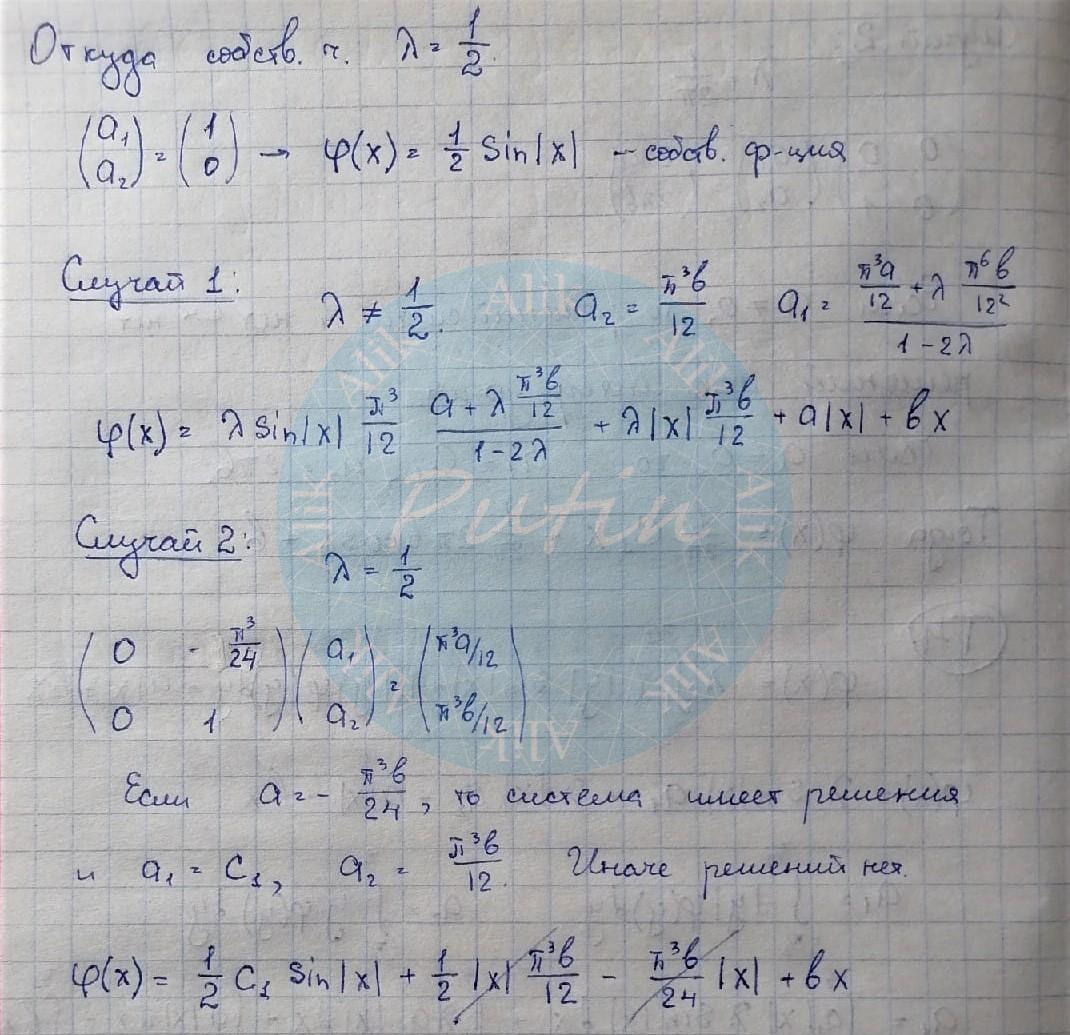 Откуда собств. ч. λ = 1/2.
(a₁ a₂) = (1 0) → φ(x) = 1/2 sin|x| – собств. ф-ция
Случай 1: λ ≠ 1/2. a₂ = π³b/12 a₁ = (π³a/12 + λ π⁶b/12²)/(1 - 2λ)
φ(x) = λ sin|x| π³/12 (a + λ π³b/12)/(1 - 2λ) + λ|x| π³b/12 + a|x| + bx
Случай 2: λ = 1/2
(0 - π³/24 0 1)(a₁ a₂) = (π³a/12 π³b/12)
Если a = - π³b/24, то система имеет решения
и a₁ = C₁, a₂ = π³b/12. Иначе решений нет.
φ(x) = 1/2 C₁ sin|x| + 1/2 |x| π³b/12 - π³b/24 |x| + bx
Putin
Alik
Alik
Alik
Alik
Alik
Alik
Alik
Alik